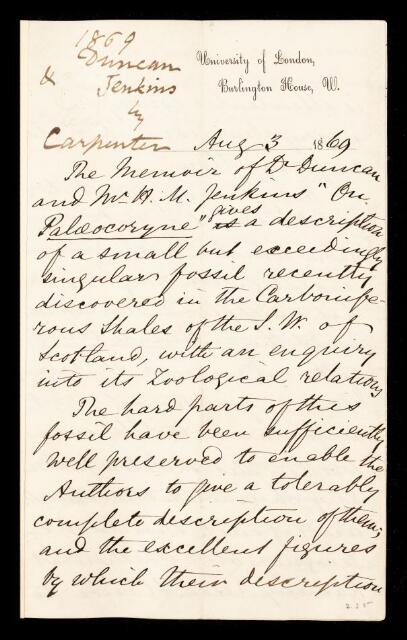 1869
Duncan
& Jenkins
by
Carpenter
University of London,
Burlington House, W.
Aug 3 1869
The Memoir of Dr Duncan
and Mr H. M. Jenkins "On
Palæocoryne" gives is a description
of a small but exceedingly
singular fossil recently
discovered in the Carbonife-
rous Shales of the S. W. of
Scotland, with an enquiry
into its Zoological relations
The hard parts of this
fossil have been sufficiently
well preserved to enable the
Authors to give a tolerably
complete description of them;
and the excellent figures
by which their description